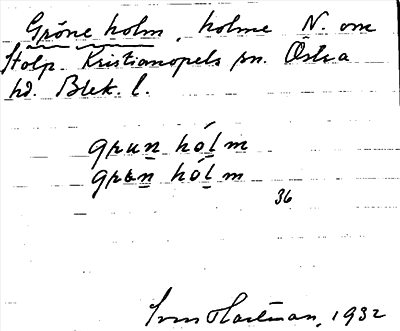 Gröne holm, holme N. om
Stolp. Kristianopels sn. Östra
hd. Blek. l.
grun hólm
grøn hólm
36
Sven Hartman, 1932